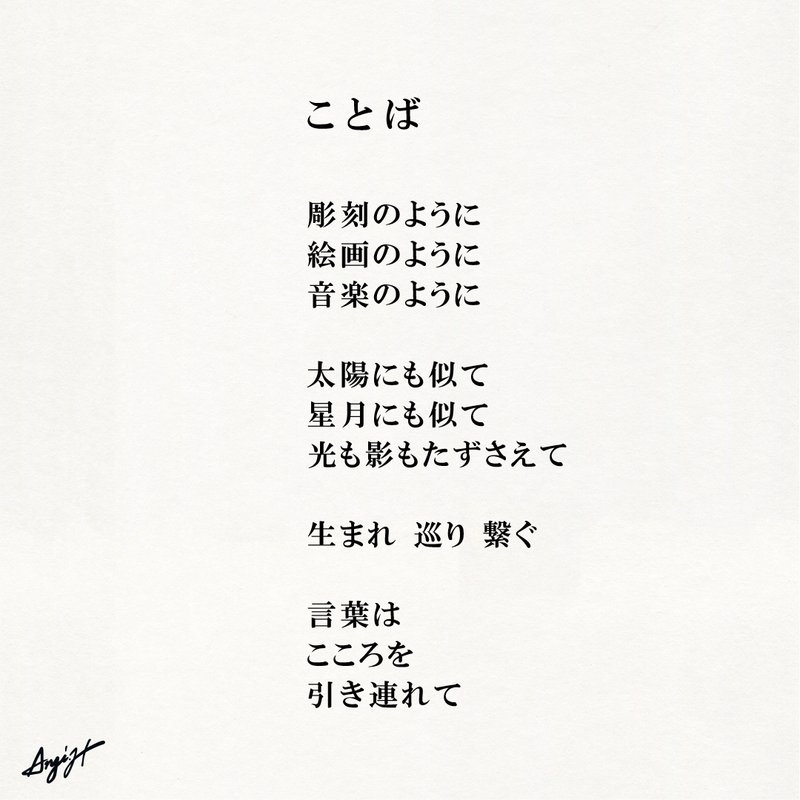 ことば
彫刻のように
絵画のように
音楽のように
太陽にも似て
星月にも似て
光も影もたずさえて
生まれ 巡り 繋ぐ
言葉は
こころを
引き連れて